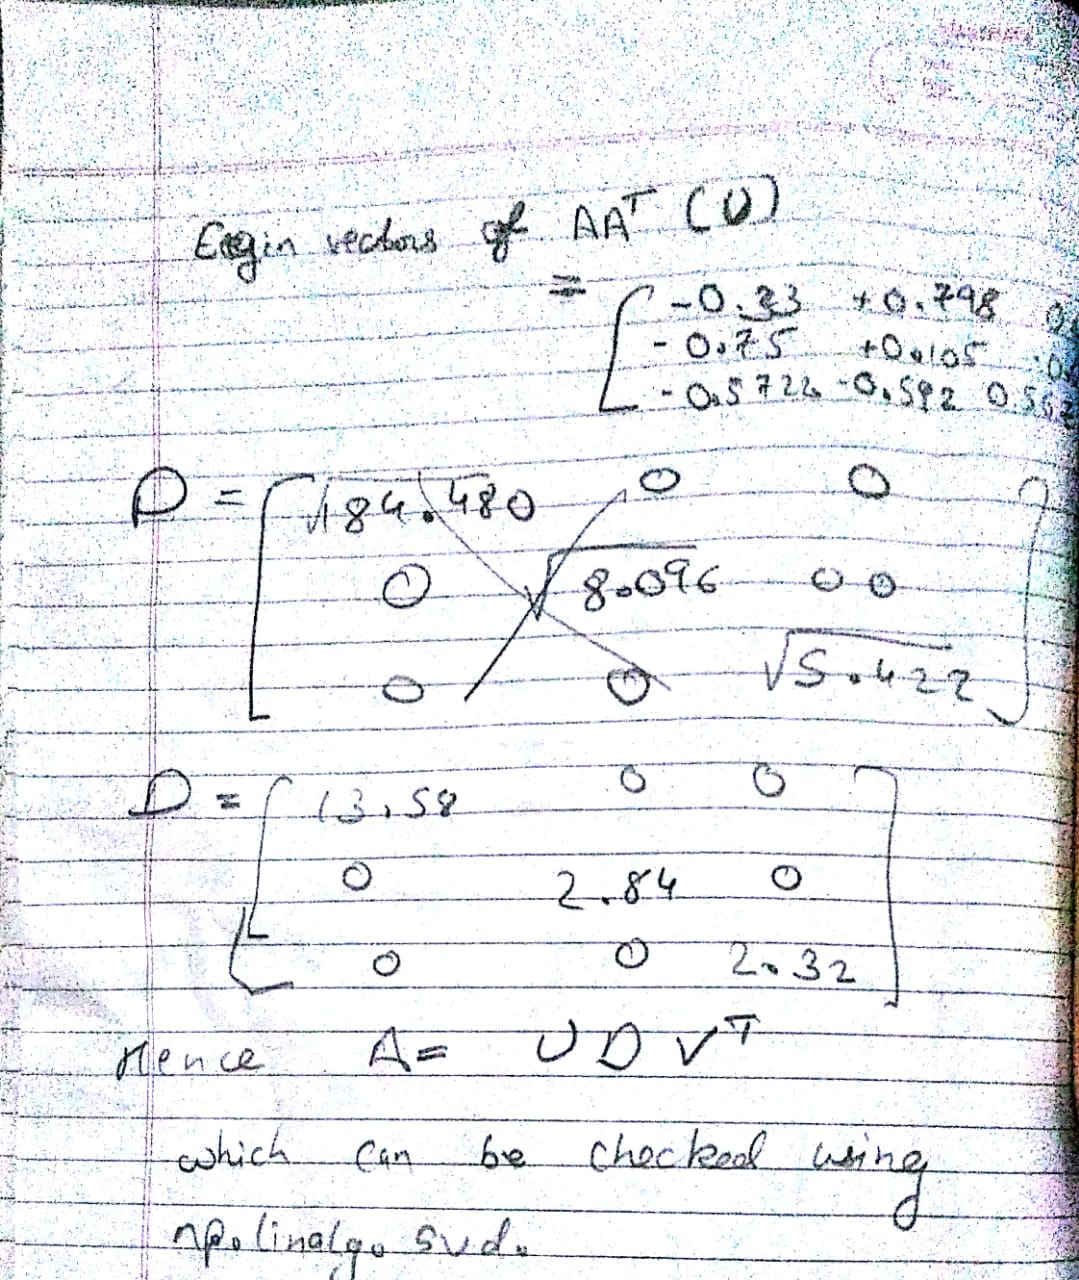 Eegin vectors of AAᵀ (U)
= [ -0.33 +0.798
-0.75 +0.105
-0.5722 -0.592 0.562
D = [ √184.480 0 0
0 √8.096 0 0
0 0 √5.422 ]
D = [ 13.58 0 0
0 2.84 0
0 0 2.32 ]
Hence A = U D Vᵀ
which can be checked using
np.linalg.svd.